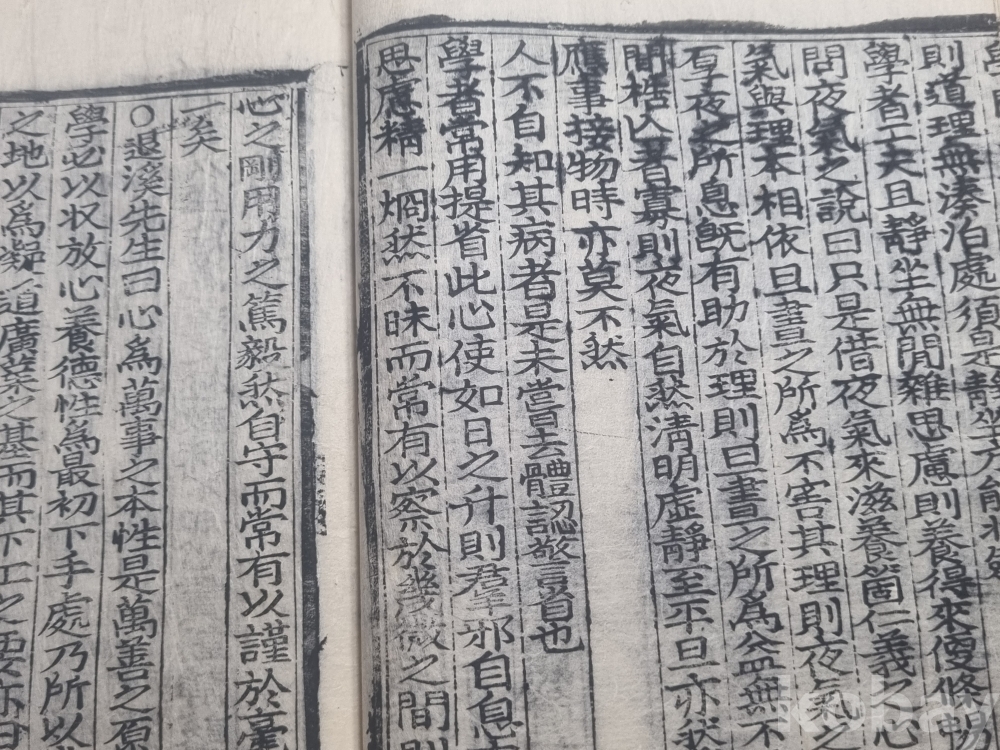 則道理無湊泊處須是靜坐方能收
學者工夫且靜坐無閒雜思慮則養得來便條暢
問夜氣之說曰只是借夜氣來滋養箇仁義之心
氣與理本相依旦晝之所爲不害其理則夜氣之
有子夜之所息旣有助於理則旦晝之所爲益無不
間梏以者寡則夜氣自然淸明虛靜至平旦亦然
應事接物時亦莫不然
人不自知其病者是未嘗去體認警省也
學者常用提省此心使如日之升則羣邪自息
思慮精一烱然不昧而常有以察於幾微之間則
心之剛用力之篤毅然自守而常有以謹於毫
一矣
○退溪先生曰心爲萬事之本性是萬善之原
學必以収放心養德性爲最初下手處乃所以
之地以爲凝道廣業之基而其下工之要亦曰